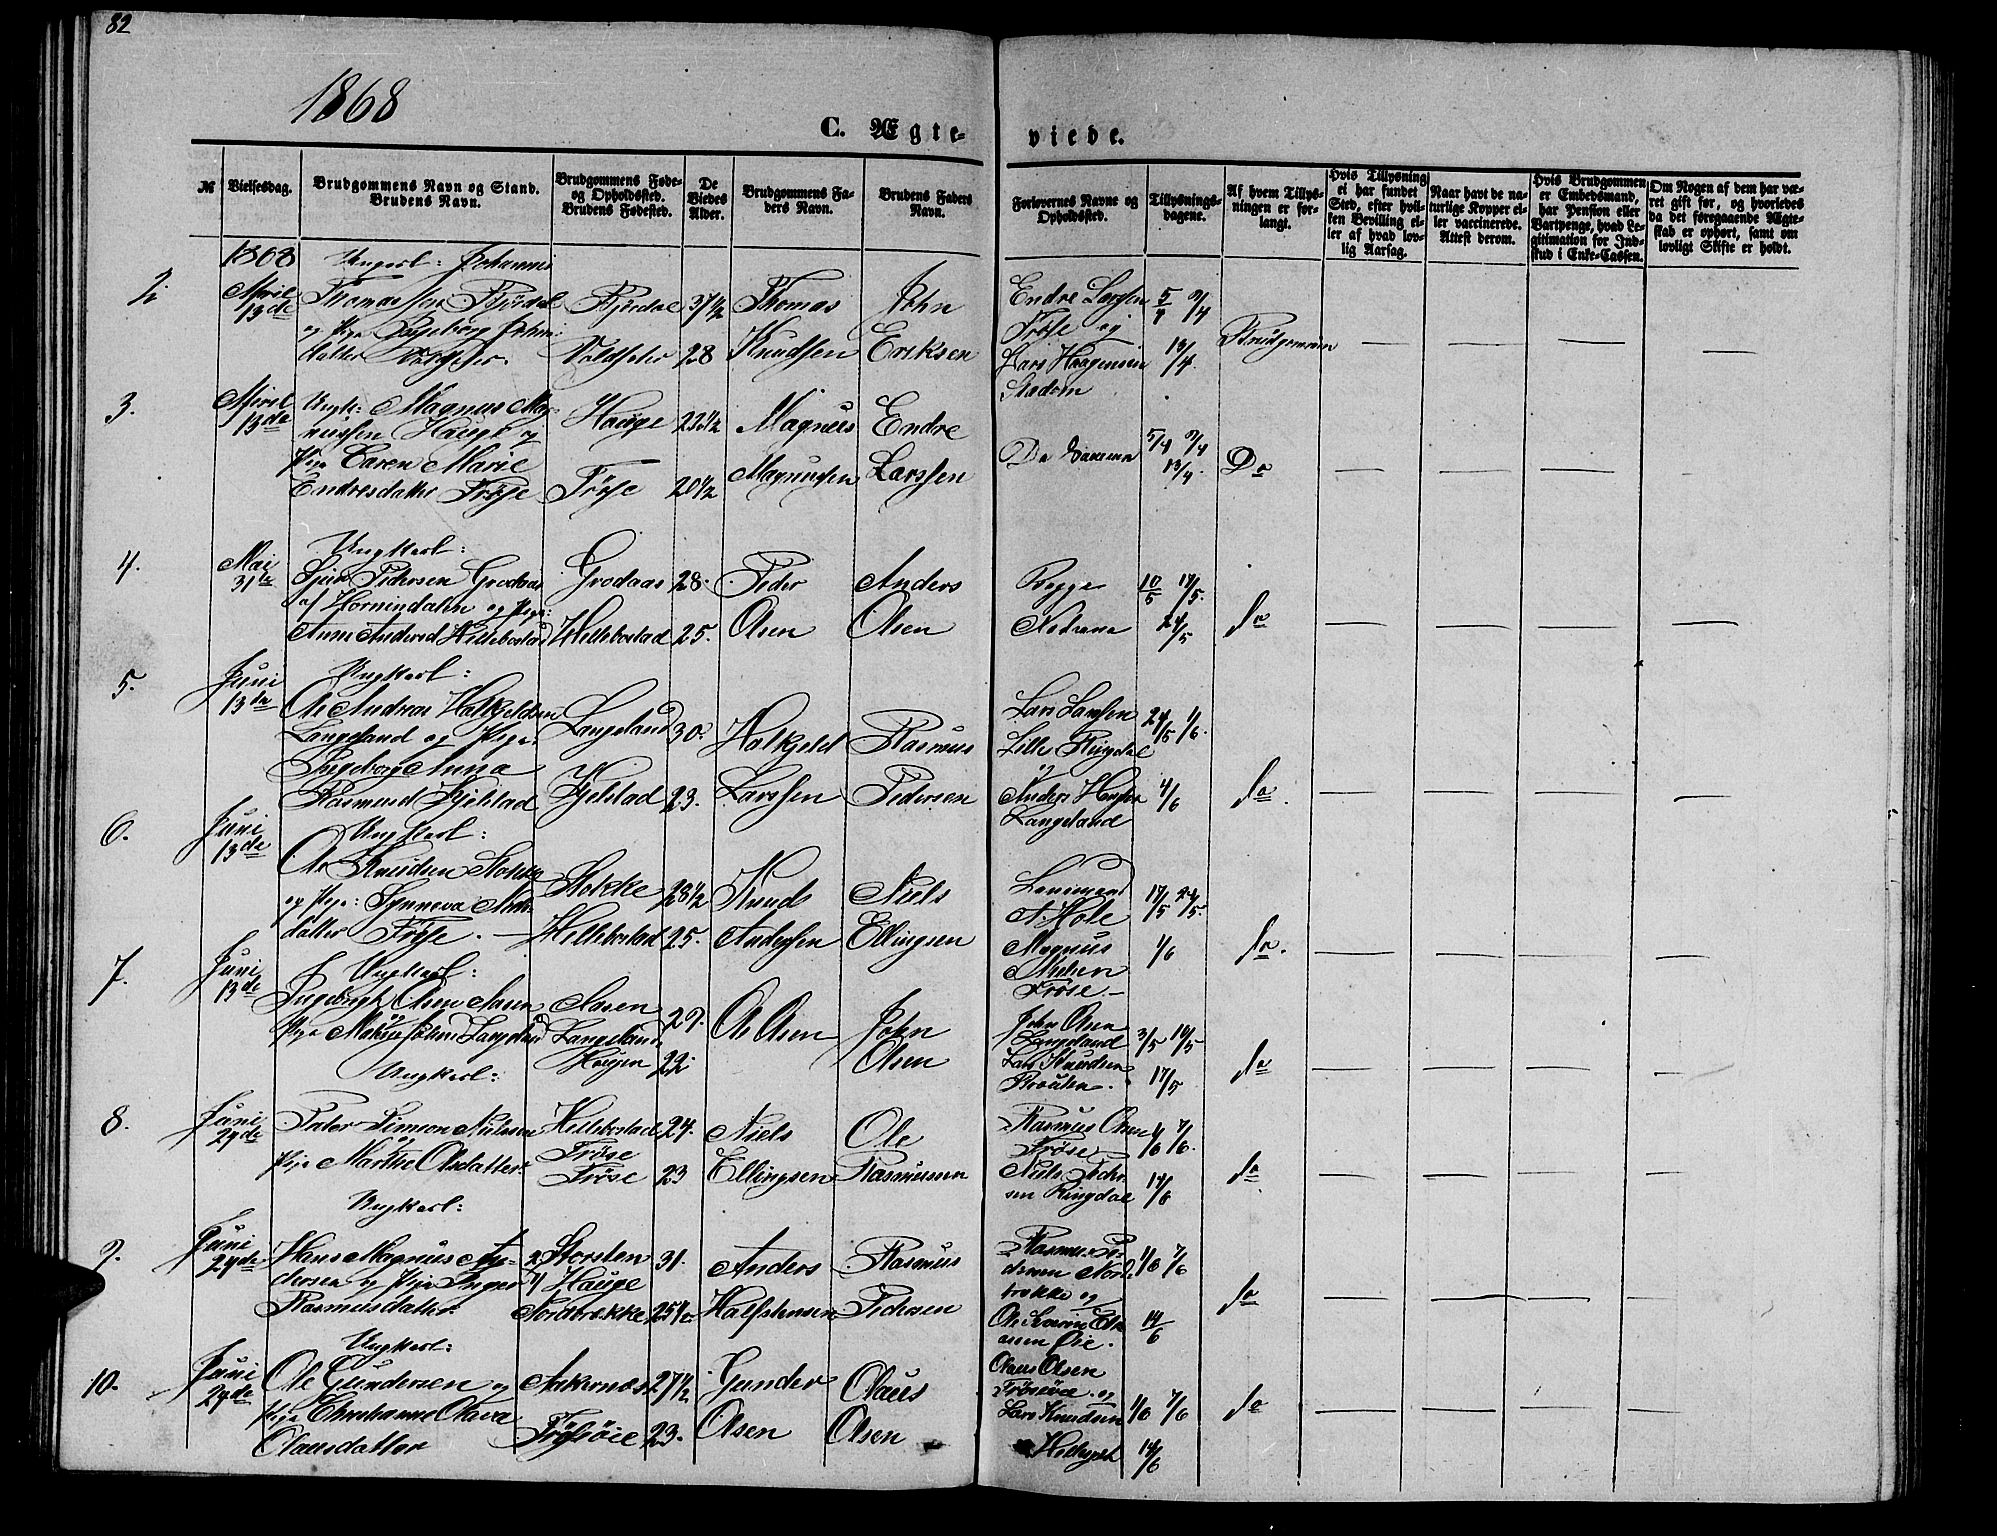 82
1868
C. Ægteviede.
№
Vielsesdag.
Brudgommens Navn og Stand.
Brudens Navn.
Brudgommens Føde-
og Opholdssted.
Brudens Fødested.
De
Viedes
Alder.
Brudgommens Fa-
ders Navn.
Brudens Faders
Navn.
Forlovernes Navne og
Opholdssted.
Tillysnings-
dagene.
Af hvem Tillys-
ningen er for-
langt.
Hvis Tillysning
ei har fundet
Sted, efter hvil-
ken Bevilling el-
ler af hvad lov-
lig Aarsag.
Naar havt de na-
turlige Kopper el-
ler vaccinerede.
Attest derom.
Hvis Brudgommen
er Embedsmand,
har Pension eller
Vartpenge, hvad Le-
gitimation for Ind-
skud i Enke-Cassen.
Om Nogen af dem har væ-
ret gift før, og hvorledes
da det foregaaende Ægte-
skab er ophørt, samt om
lovligt Skifte er holdt.
1868
2.
April 13de
Ungkl: Johannes
Thomassen Bjørdal
Bjørdal 37 1/2 Thomas Knudsen
28 John Eriksen
Endre Larssen
Frøse og
Lars Haagensen
5/4 9/4 13/4
Brudgommen
3.
April 13de
Ungk: Magnus Mag-
nussen Hauge og
Pige Caren Marie
Endresdatter Frøse
Hauge 23 1/2 Magnus Magnussen
Frøse 20 1/2 Endre Larssen
De Samme
5/4 9/4 13/4
Do
4.
Mai 31te
Ungkarl:
Pedersen Grodaas
af Hornindalen og Pige:
Anne Andersd Hellebostad
Grodaas 28. Peder Olsen
Hellebostad 25. Anders Olsen
Begge
10/5 17/5. 24/5
do
5.
Juni 13de
Ungkarl:
Ole Andreas Halkjeldsen
Langeland og Pige:
Ingeborg Anna
Rasmusd Kjelstad
Langeland 30. Halkjeld Larssen
Kjelstad 23. Rasmus Pedersen
Lars Larssen
Lille Ringdal
og
Anders
Langeland
24/5 1/6. 4/6
do.
6.
Juni 13de
Ungkarl:
Ole Knudsen Stokke
og Pige: Synneva Niels-
datter Frøse.
Stokke 28 1/2 Knud Andersen
Hellebostad 25. Niels Ellingsen
Lensmand
A. Hole
Magnus
Nielsen
Frøse.
17/5 24/5. 1/6
do.
7.
Juni 13de
Ungkarl:
Olsen Aasen
Langeland
Aasen 29. Ole Olsen
Langeland
Haugen 22. John Olsen
John Olsen
Langeland
Lars Knudsen
3/5 10/5 17/5
do
8.
Juni 24de
Ungkarl:
Peter Simon Nielssen
og
Pige Marthe Olsdatter
Hellebostad 24. Niels Ellingsen
Frøse
Frøse 23 Ole Rasmussen
Rasmus Olsen
Frøse
Niels Peder-
sen Ringdal
1/6 7/6. 14/6
do
9.
Juni 24de
Ungkarl:
Hans Magnus An-
dersen og Pige Inger
Rasmusdatter
Storsten 31. Anders Halfstensen
Hauge
Nordbrekke 25 1/2 Rasmus Pedersen
Rasmus Pe-
dersen Nord-
brekke og
1/6 7/6 14/6
do
10.
Juni 24de
Ungkarl:
Ole Gundersen og
Pige Christianne Olava
Olausdatter
Aakernæs 27 1/2 Gunder Olsen
Frøsøie 23. Olaus Olsen
Olaus Olsen
Frøsøie og
Lars Knudsen
1/6 7/6 14/6
do